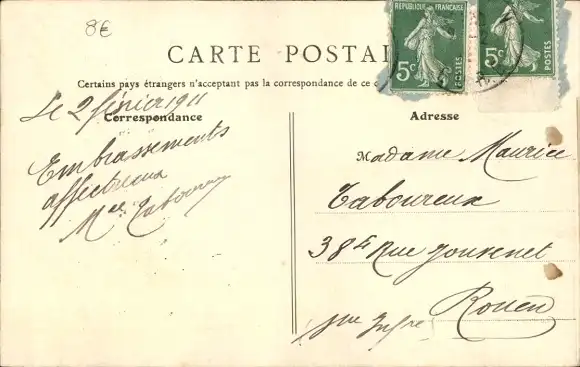 8€
CARTE POSTAL
RÉPUBLIQUE FRANÇAISE
5c POSTES
5c POSTES
Certains pays étrangers n'acceptant pas la correspondance de ce c
Le 2 février 1911
Correspondance
Embrassements
affectueux
Mce Taboureux
Adresse
Madame Maurice
Taboureux
38 Rue Jouvenet
Rouen
Infre